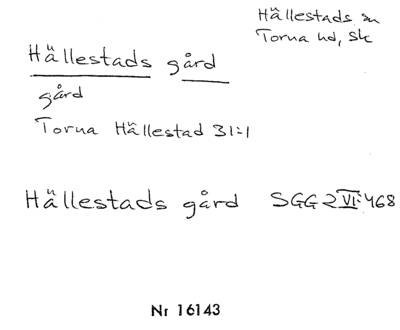 Hällestads sn
Torna hd, Sk
Hällestads gård
gård
Torna Hällestad 31:1
Hällestads gård SGG 2 VI:468
Nr 16143